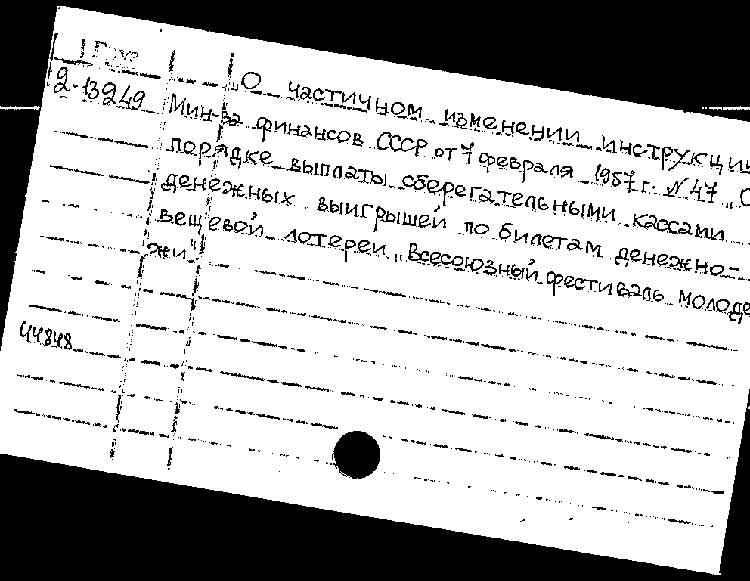 О частичном изменении инструкции
2-13249 Мин-ва финансов СССР от 7 февраля 1957 г. N 47 "О
порядке выплаты сберегательными кассами
денежных выигрышей по билетам денежно-
вещевой лотереи "Всесоюзный фестиваль молоде
жи"
44848